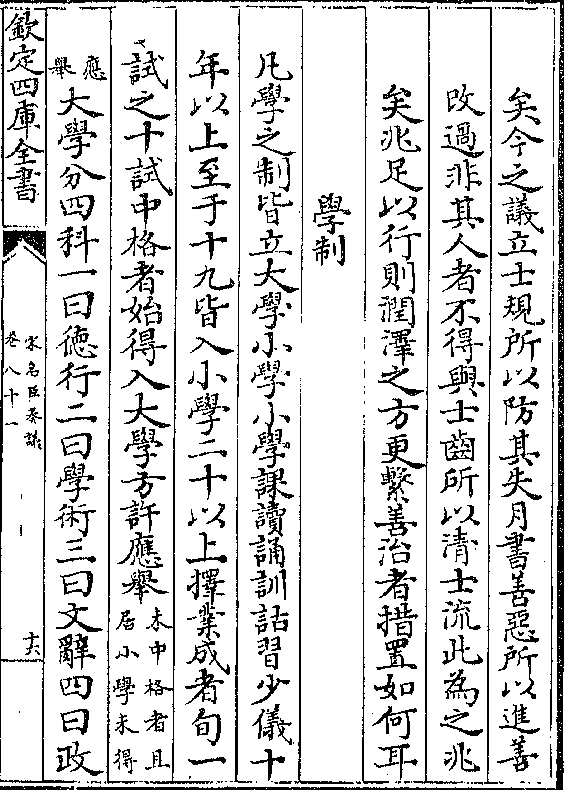 矣今之議立士規所以防其失月書善惡所以進善
改過非其人者不得與士齒所以清士流此為之兆
矣兆足以行則潤澤之方更繫善治者措置如何耳
學制
凡學之制皆立大學小學小學課讀誦訓詁習少儀十
年以上至于十九皆入小學二十以上擇業成者旬一
試之十試中格者始得入大學方許應舉未中格者且
居小學未得
應
舉
大學分四科一曰德行二曰學術三曰文辭四曰政
欽定四庫全書
宋名臣奏議
卷八十一
十六